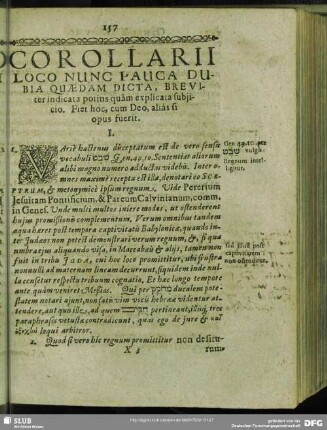 157
COROLLARII
LOCO NUNC PAUCA DU-
BIA QUÆDAM DICTA, BREVI-
ter indicata potius quàm explicata subji-
cio. Fiet hoc, cum Deo, aliàs si
opus fuerit.
I.
1. VArié hactenus disceptatum est de vero sensu
vocabuli שבט Gen. 49, 10. Sententias aliorum
alibi magno numero adductas videbis. Inter o-
mnes maximè recepta est illa, denotari eo SCE-
PTRUM, & metonymicè ipsum regnum. Vide Pererium
Jesuitam Pontificium, & Pareum Calvinianum, comm.
in Genes. Unde multi multos iniere modos, ut ostenderent
hujus promissionis complementum. Verum omnibus tandem
aqua hæret post tempora captivitatis Babylonicæ, quando in-
ter Judæos non potest demonstrari verum regnum, &, si qua
umbra ejus aliquando visa, in Maccabæis & aliis, tamen non
fuit in tribu JUDA, cui hoc loco promittitur, ubi frustra
nonnulli ad maternam lineam decurrunt, siquidem inde nul-
la censetur respectu tribuum cognatio. Et hæc longo tempore
ante quàm veniret Messias. Qui per מחקק ducalem pote-
statem notari ajunt, non satis vim vocis hebreæ videntur at-
tendere, aut quo illæ, ad quem pertineant,
paraphrasis vetustæ contradicunt, quas ego de jure &
loqui arbitror.
2. Quod si vero hîc regnum promittitur non destitu-
X 3
rum,
Gen. 49. 10. per
שבט vulgò
Regnum intel-
ligitur.
Sed illud post
captivitatem
non ostenditur.
SLUB
Wir führen Wissen.
http://digital.slub-dresden.de/
gefördert von der
Deutschen Forschungsgemeinschaft
DFG